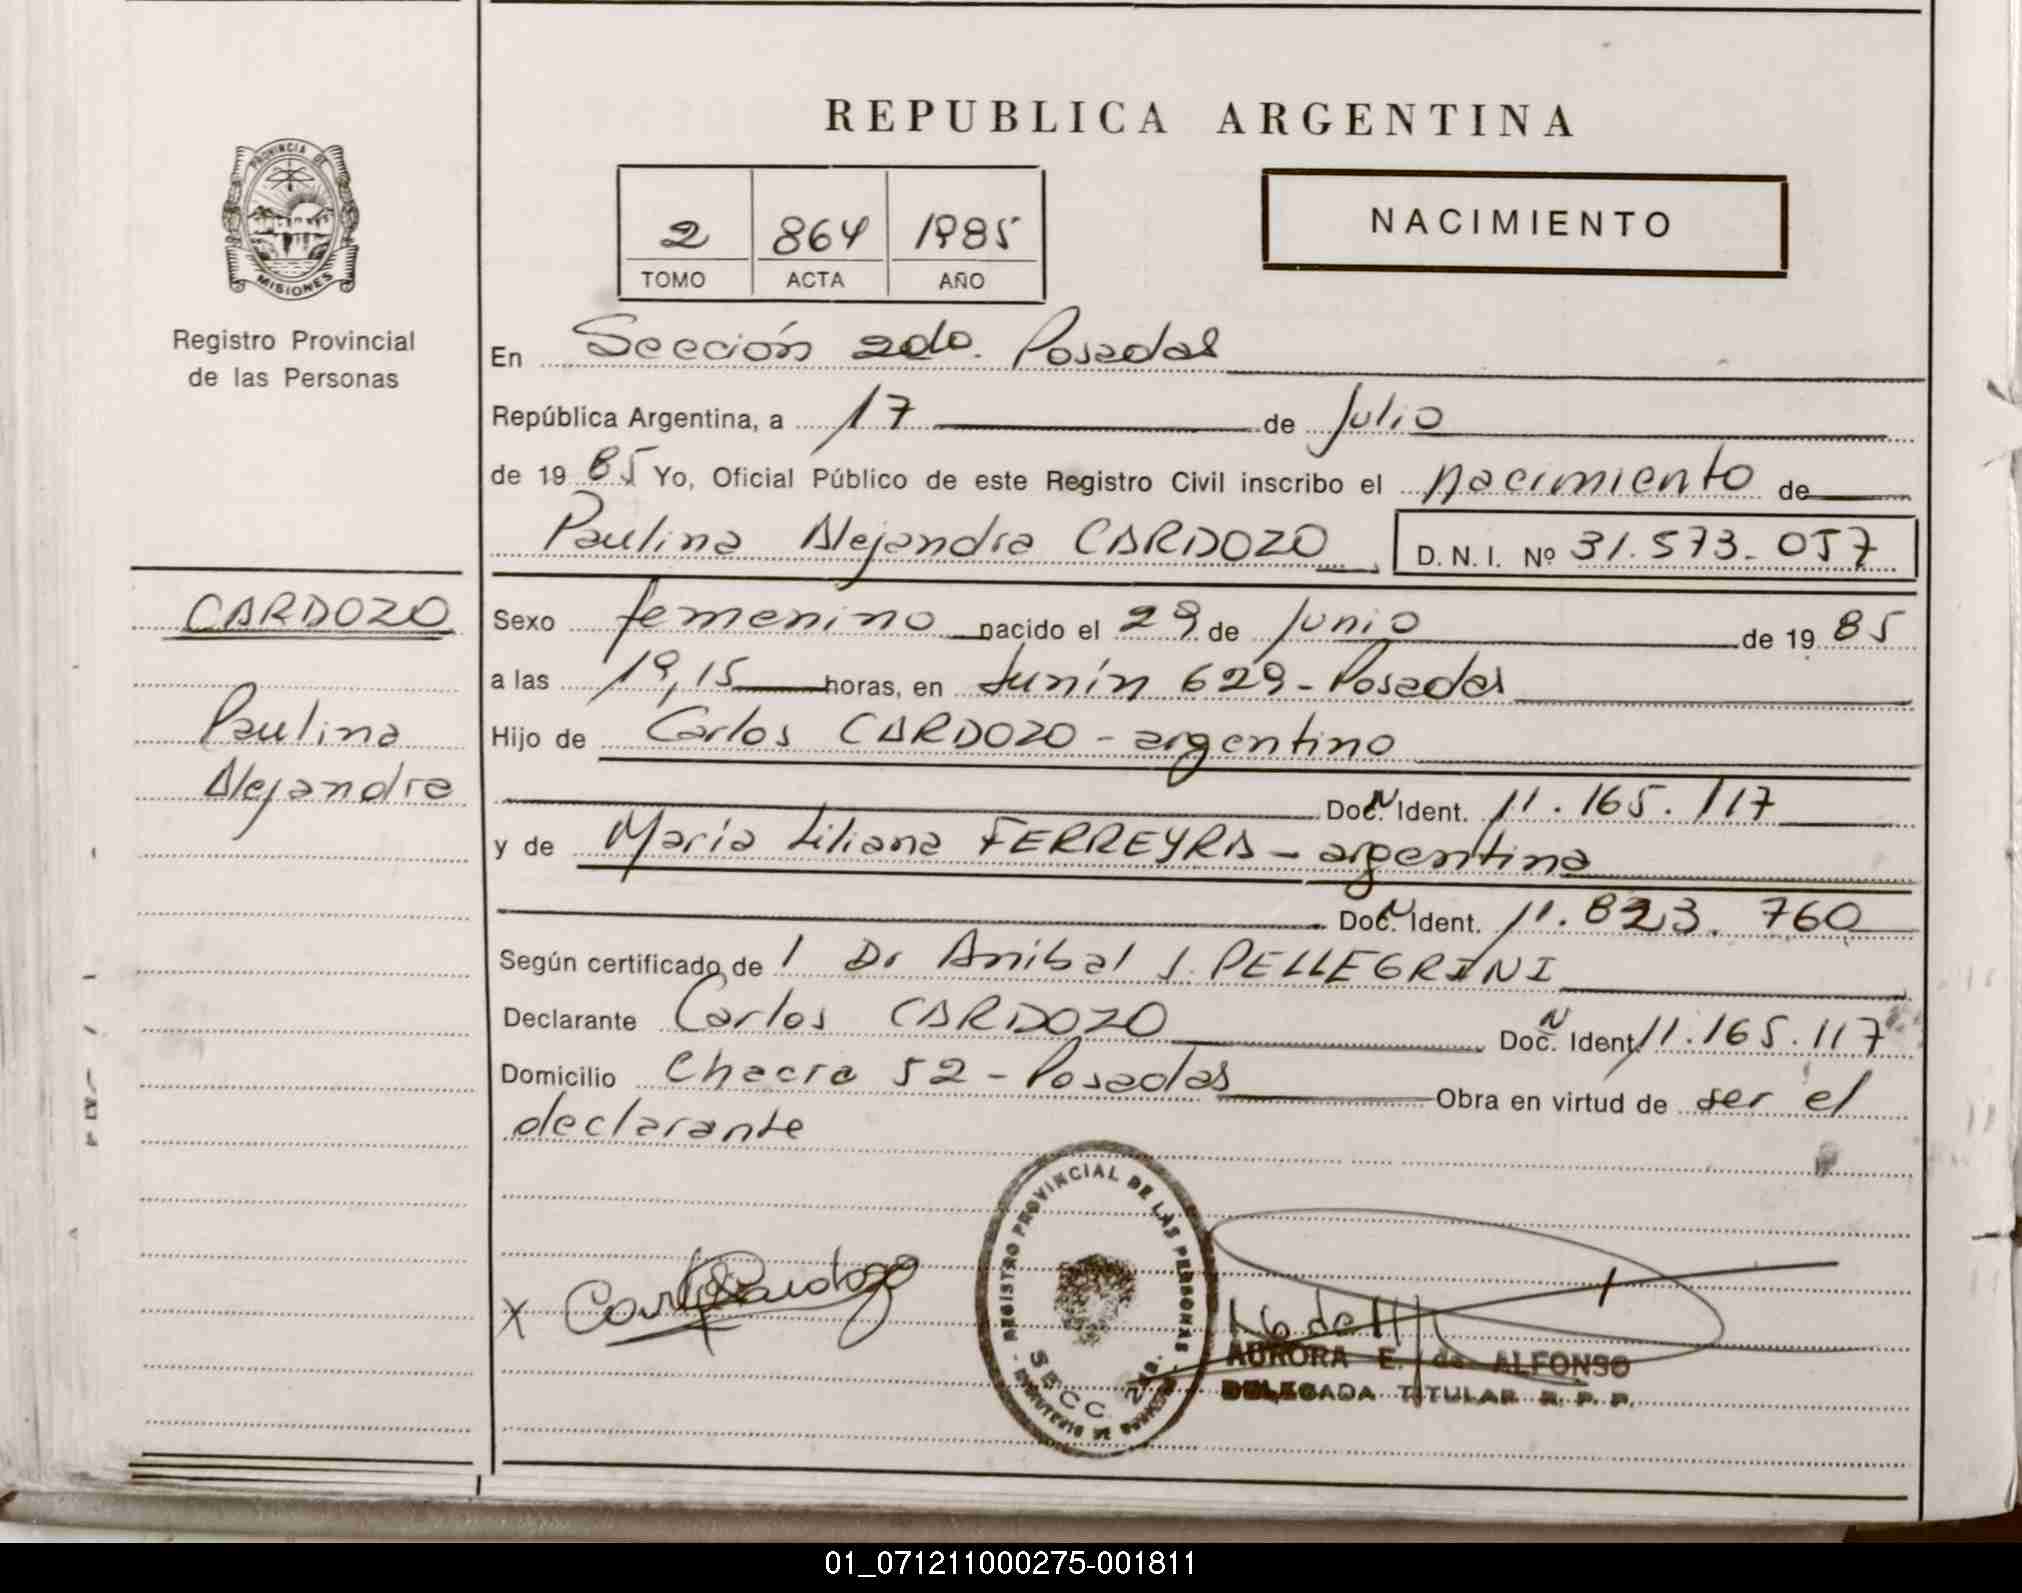 REPUBLICA ARGENTINA
PROVINCIA DE
MISIONES
Registro Provincial
de las Personas
2 864 1985
TOMO ACTA AÑO
NACIMIENTO
En Sección 2da. Posadas
República Argentina, a 17 de Julio
de 19 85 Yo, Oficial Público de este Registro Civil inscribo el nacimiento de
Paulina Alejandra CARDOZO D.N.I. Nº 31.573.057
CARDOZO
Paulina
Alejandra
Sexo femenino nacido el 29 de Junio de 19 85
a las 19,15 horas, en Junín 629 - Posadas
Hijo de Carlos CARDOZO - argentino
Doc. N Ident. 11.165.117
y de María Liliana FERREYRA - argentina
Doc. N Ident. 11.823.760
Según certificado de l Dr Anibal J. PELLEGRINI
Declarante Carlos CARDOZO Doc. N Ident. 11.165.117
Domicilio Chacra 52 - Posadas Obra en virtud de ser el
declarante
REGISTRO PROVINCIAL DE LAS PERSONAS
SECC. 2da.
X Carlos Cardozo
AURORA E. de ALFONSO
DELEGADA TITULAR R. P. P.
01_071211000275-001811